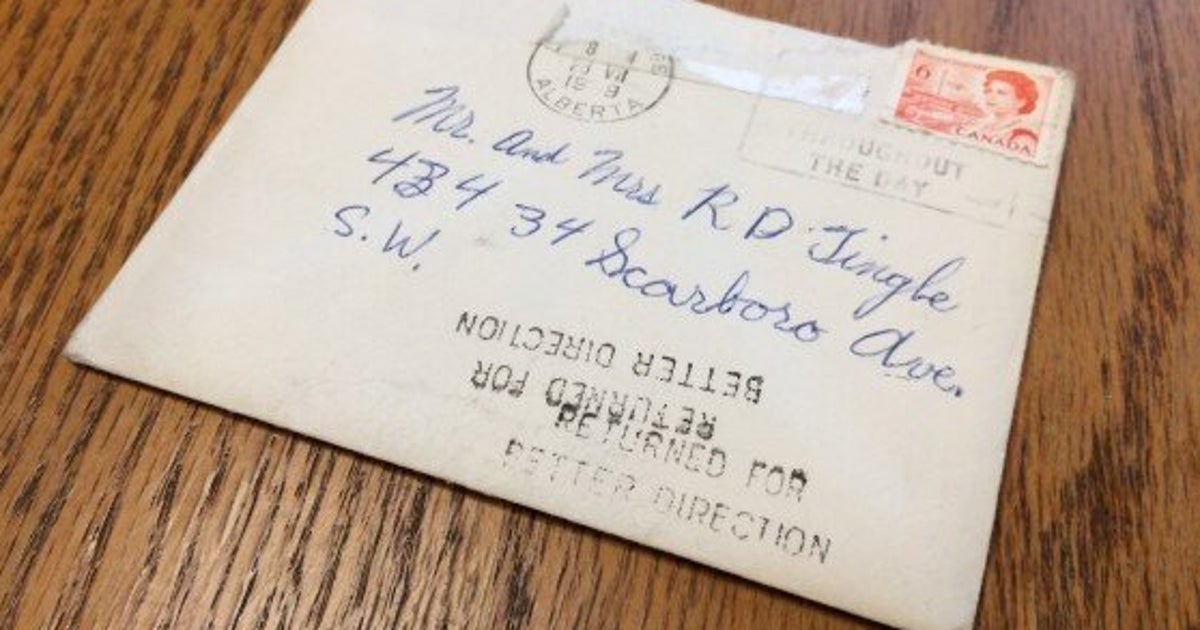 8
VII
ALBERTA
6
CANADA
THROUGHOUT
THE DAY
Mr. And Mrs R D Tingle
434 34 Scarboro Ave.
S.W.
BETTER DIRECTION
RETURNED FOR
RETURNED FOR
BETTER DIRECTION